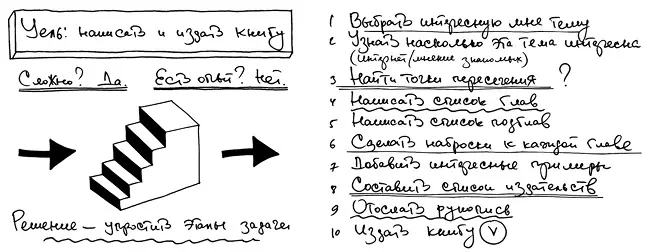 Цель: написать и издать книгу
Сложно? Да. Есть опыт? Нет.
Решение – упростить этапы задачи
1 Выбрать интересную мне тему
2 Узнать насколько эта тема интересна
(интернет/мнение знакомых)
3 Найти точки пересечения ?
4 Написать список глав
5 Написать список подглав
6 Сделать наброски к каждой главе
7 Добавить интересные примеры
8 Составить список издательств
9 Отослать рукопись
10 Издать книгу V